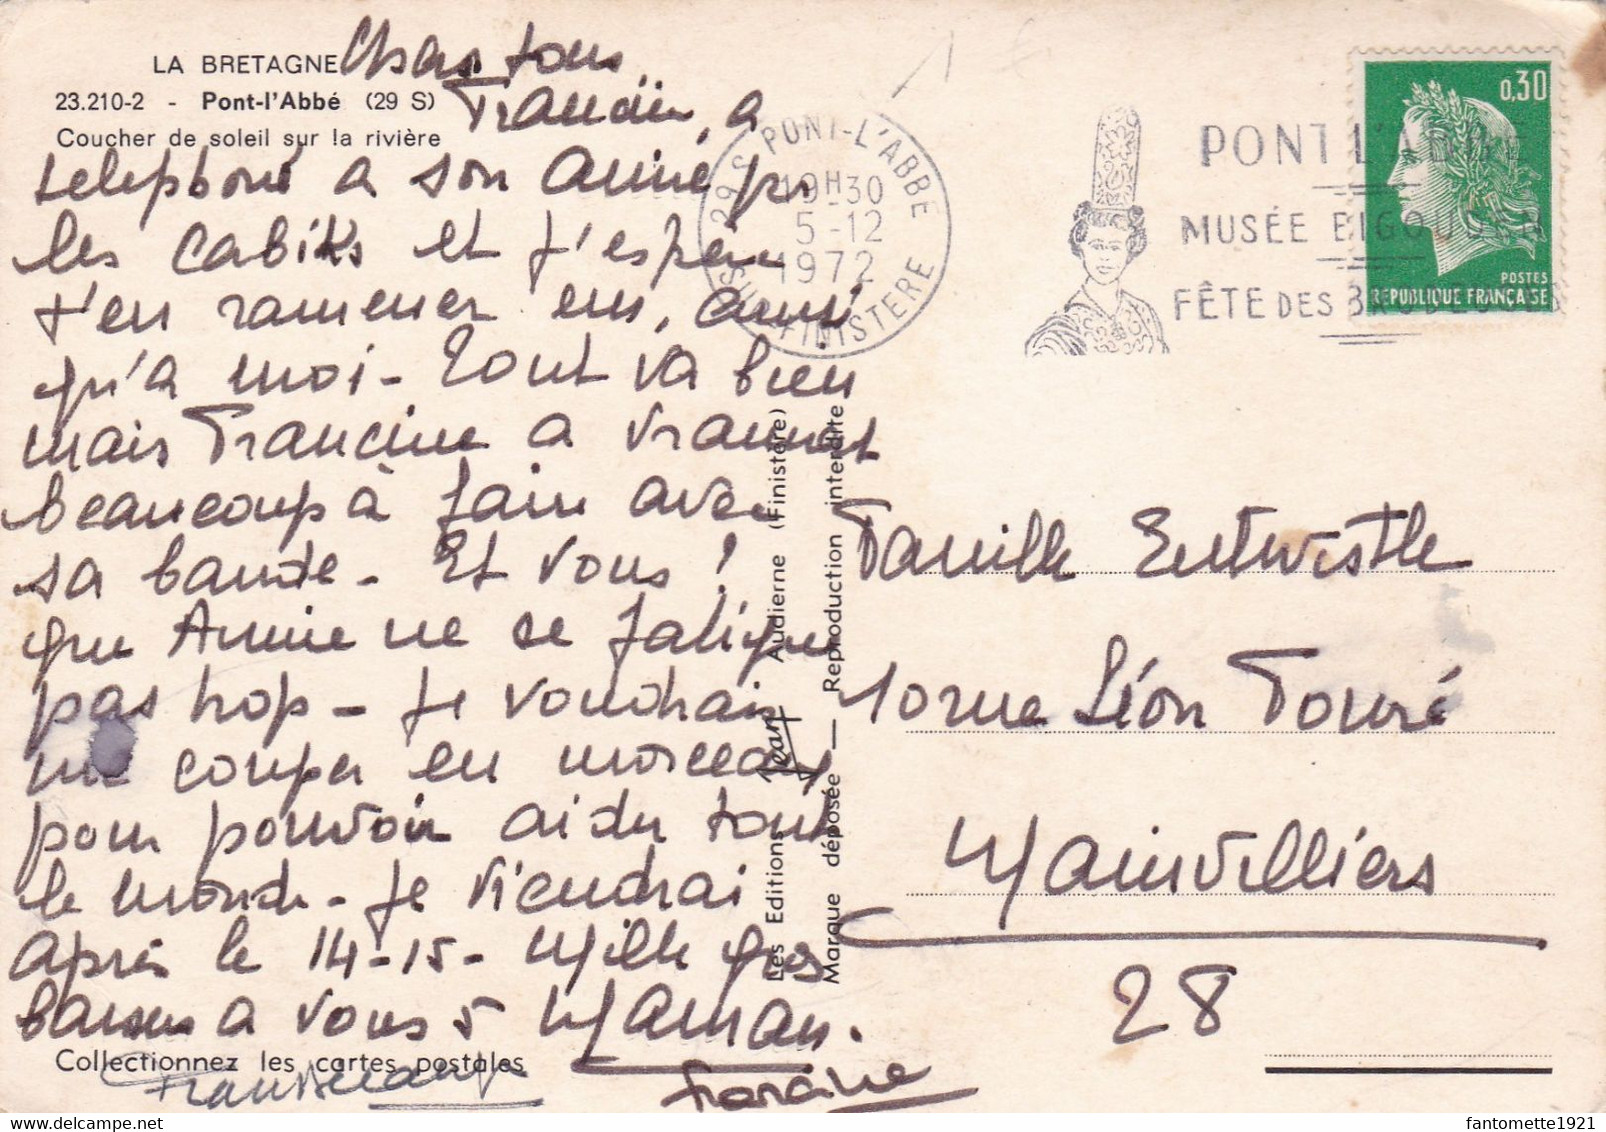 LA BRETAGNE
23.210-2 - Pont-l'Abbé (29 S)
Coucher de soleil sur la rivière
Chers tous,
Francine, a
telephoné a son amie pr
les cabiks et j'espère
t'en ramener un, aussi
qu'a moi - Tout va bien
mais Francine a vraiment
beaucoup à faire avec
sa bande - Et vous !
que Annie ne se fatigue
pas trop - Je voudrais
me couper en morceaux
pour pouvoir aider tout
le monde - Je viendrai
après le 14-15 - Mille gros
baisers a vous 5 Maman.
Collectionnez les cartes postales
Francine
Les Editions Jean Audierne (Finistère)
Marque déposée — Reproduction interdite
29 S PONT-L'ABBÉ
19H30
5-12
1972
SUD FINISTERE
PONT L'ABBÉ
MUSÉE BIGOUDEN
FÊTE DES BRODEUSES
0,30
POSTES
REPUBLIQUE FRANÇAISE
Famille Entwistle
10 rue Léon Fouré
Mainvilliers
28
fantomette1921